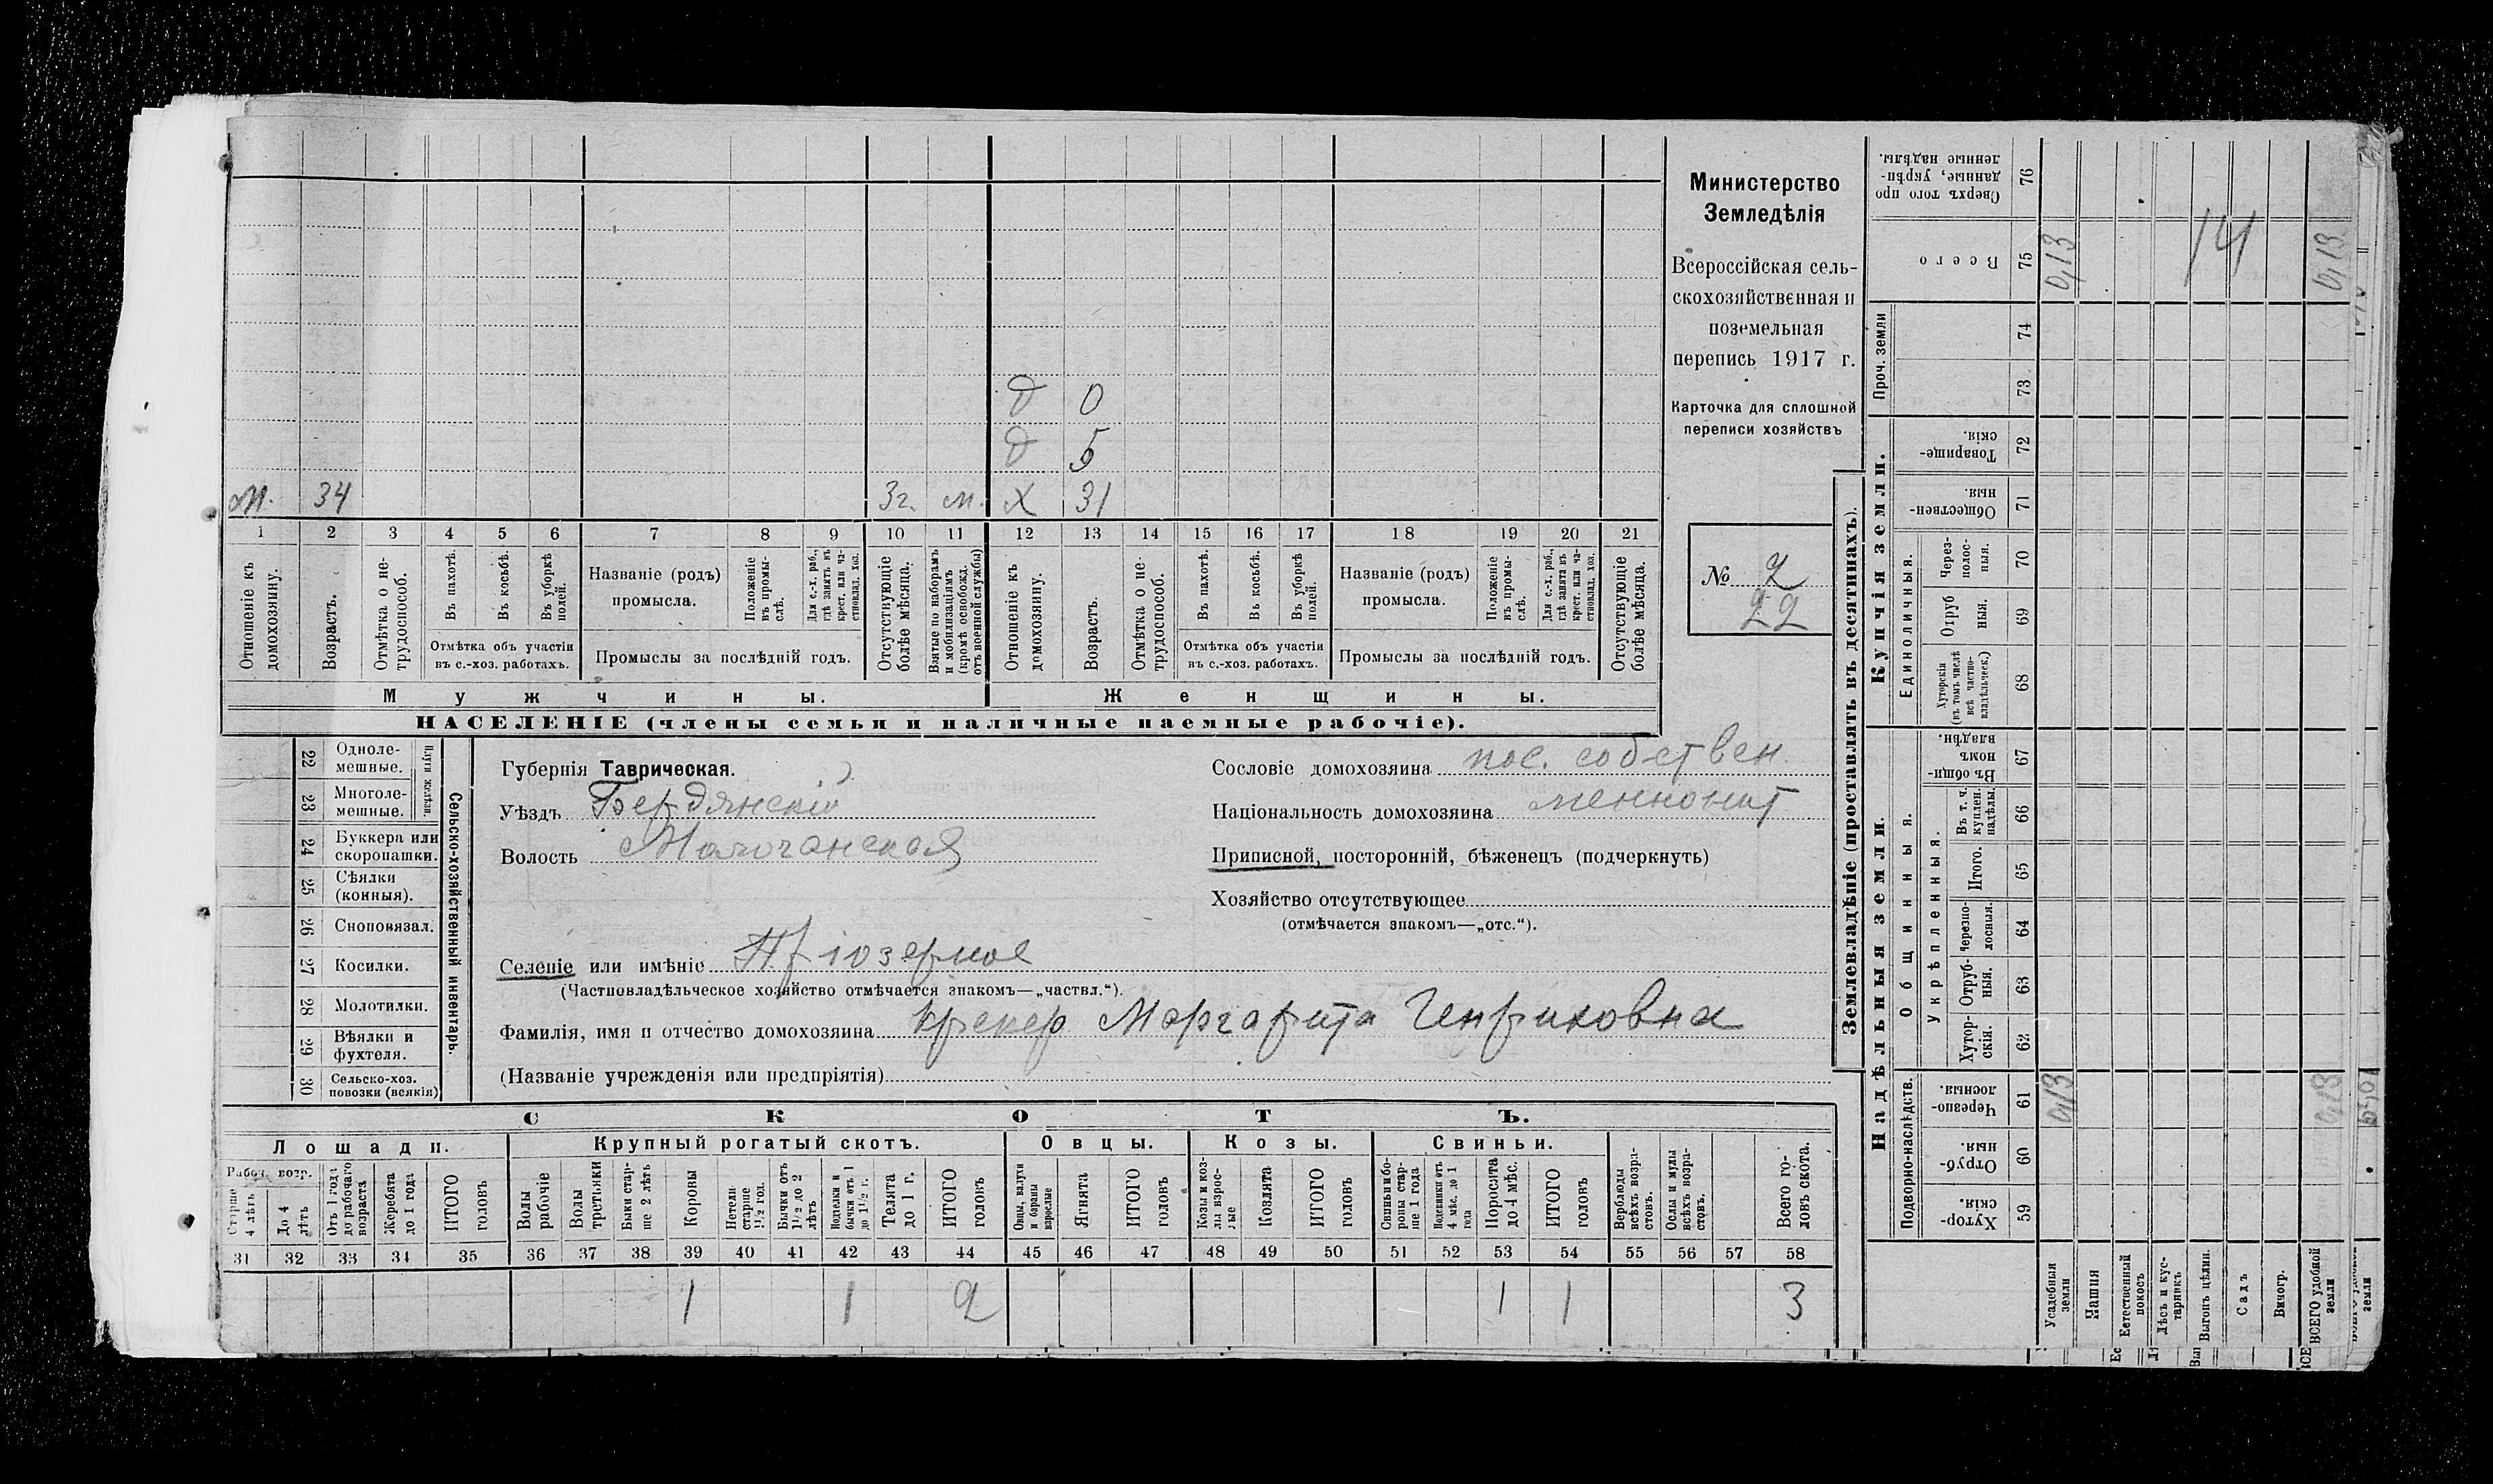 м. 34 3г. м. х 31
д 5
д 0
1 2 3 4 5 6 7 8 9 10 11 12 13 14 15 16 17 18 19 20 21
Отношеніе къ домохозяину.
Возрастъ.
Отмѣтка о не-
трудоспособ.
Въ пахотѣ.
Въ косьбѣ.
Въ уборкѣ
полей.
Отмѣтка объ участіи
въ с.-хоз. работахъ.
Названіе (родъ)
промысла.
Положеніе
въ промы-
слѣ.
Для с.-х. раб.,
гдѣ занятъ въ
крест. или ча-
стновлад. хоз.
Промыслы за послѣдній годъ.
Отсутствующіе
болѣе мѣсяца.
Взятые по наборамъ
и мобилизаціямъ
(кромѣ освобожд.
отъ военной службы)
Отношеніе къ
домохозяину.
Возрастъ.
Отмѣтка о не-
трудоспособ.
Въ пахотѣ.
Въ косьбѣ.
Въ уборкѣ
полей.
Отмѣтка объ участіи
въ с.-хоз. работахъ.
Названіе (родъ)
промысла.
Положеніе
въ промы-
слѣ.
Для с.-х. раб.,
гдѣ занята въ
крест. или ча-
стновлад. хоз.
Промыслы за послѣдній годъ.
Отсутствующіе
болѣе мѣсяца.
Мужчины. Женщины.
НАСЕЛЕНІЕ (члены семьи и наличные наемные рабочіе).
Министерство
Земледѣлія
Всероссійская сель-
скохозяйственная и
поземельная
перепись 1917 г.
Карточка для сплошной
переписи хозяйствъ
№ 2
22
22 Одноле-
мешные.
23 Многоле-
мешные.
Плуги желѣзн.
24 Буккера или
скоропашки.
25 Сѣялки
(конныя).
26 Сноповязал.
27 Косилки.
28 Молотилки.
29 Вѣялки и
фухтеля.
30 Сельско-хоз.
повозки (всякія)
Сельско-хозяйственный инвентарь.
Губернія Таврическая.
Уѣздъ Бердянскій
Волость Молочанская
Сословіе домохозяина пос. собствен.
Національность домохозяина меннонит
Приписной, посторонній, бѣженец (подчеркнуть)
Хозяйство отсутствующее
(отмѣчается знакомъ—„отс.“).
Селеніе или имѣніе Пріозерное
(Частновладѣльческое хозяйство отмѣчается знакомъ—„частвл.“).
Фамилія, имя и отчество домохозяина Крекер Маргарита Генриховна
(Названіе учрежденія или предпріятія)
СКОТЪ.
Лошади. Крупный рогатый скотъ. Овцы. Козы. Свиньи.
Рабоч. возр.
Старше
4 лѣтъ
До 4
лѣтъ
Отъ 1 года
до рабочаго
возраста
Жеребята
до 1 года
ИТОГО
головъ
Волы
рабочіе
Волы
третьяки
Быки стар-
ше 2 лѣтъ
Коровы
Нетели
старше
1½ год.
Бычки отъ
1½ до 2
лѣтъ
Подтелки и
бычки отъ 1
до 1½ г.
Телята
до 1 г.
ИТОГО
головъ
Овцы, валухи
и бараны
взрослые
Ягнята
ИТОГО
головъ
Козы и коз-
лы взрос-
лые
Козлята
ИТОГО
головъ
Свиньи и бо-
ровы стар-
ше 1 года
Подсвинки отъ
4 мѣс. до 1
года
Поросята
до 4 мѣс.
ИТОГО
головъ
Верблюды
всѣхъ возра-
стовъ.
Ослы и мулы
всѣхъ возра-
стовъ.
Всего го-
ловъ скота.
31 32 33 34 35 36 37 38 39 40 41 42 43 44 45 46 47 48 49 50 51 52 53 54 55 56 57 58
1 1 2 1 1 3
Землевладѣніе (проставлять въ десятинахъ).
Надѣльныя земли. Купчія земли.
Подворно-наслѣдств.
Общинныя.
Укрѣпленныя.
Единоличныя.
Проч. земли
Хутор-
скія. 59
Отруб-
ныя. 60
Черезпо-
лосныя. 61
Хутор-
скія. 62
Отруб-
ныя. 63
Черезпо-
лосныя. 64
Итого. 65
Въ т. ч.
куплен.
надѣлы. 66
Въ общи-
номъ
владѣн. 67
Хуторскія
(въ томъ числѣ
всѣ частно-
владѣльческ.) 68
Отруб
ныя. 69
Через-
полос-
ныя. 70
Обществен-
ныя. 71
Товарище-
скія. 72
73
74
Всего 75
Сверхъ того про
данные, укрѣп-
ленные надѣлы. 76
Усадебныя
земли 0,13 0,13
Пашня
Естественный
покосъ
Лѣсъ и кус-
тарникъ
Выгонъ цѣлин.
Садъ
Виногр.
ВСЕГО удобной
земли 0,13 0,13
14